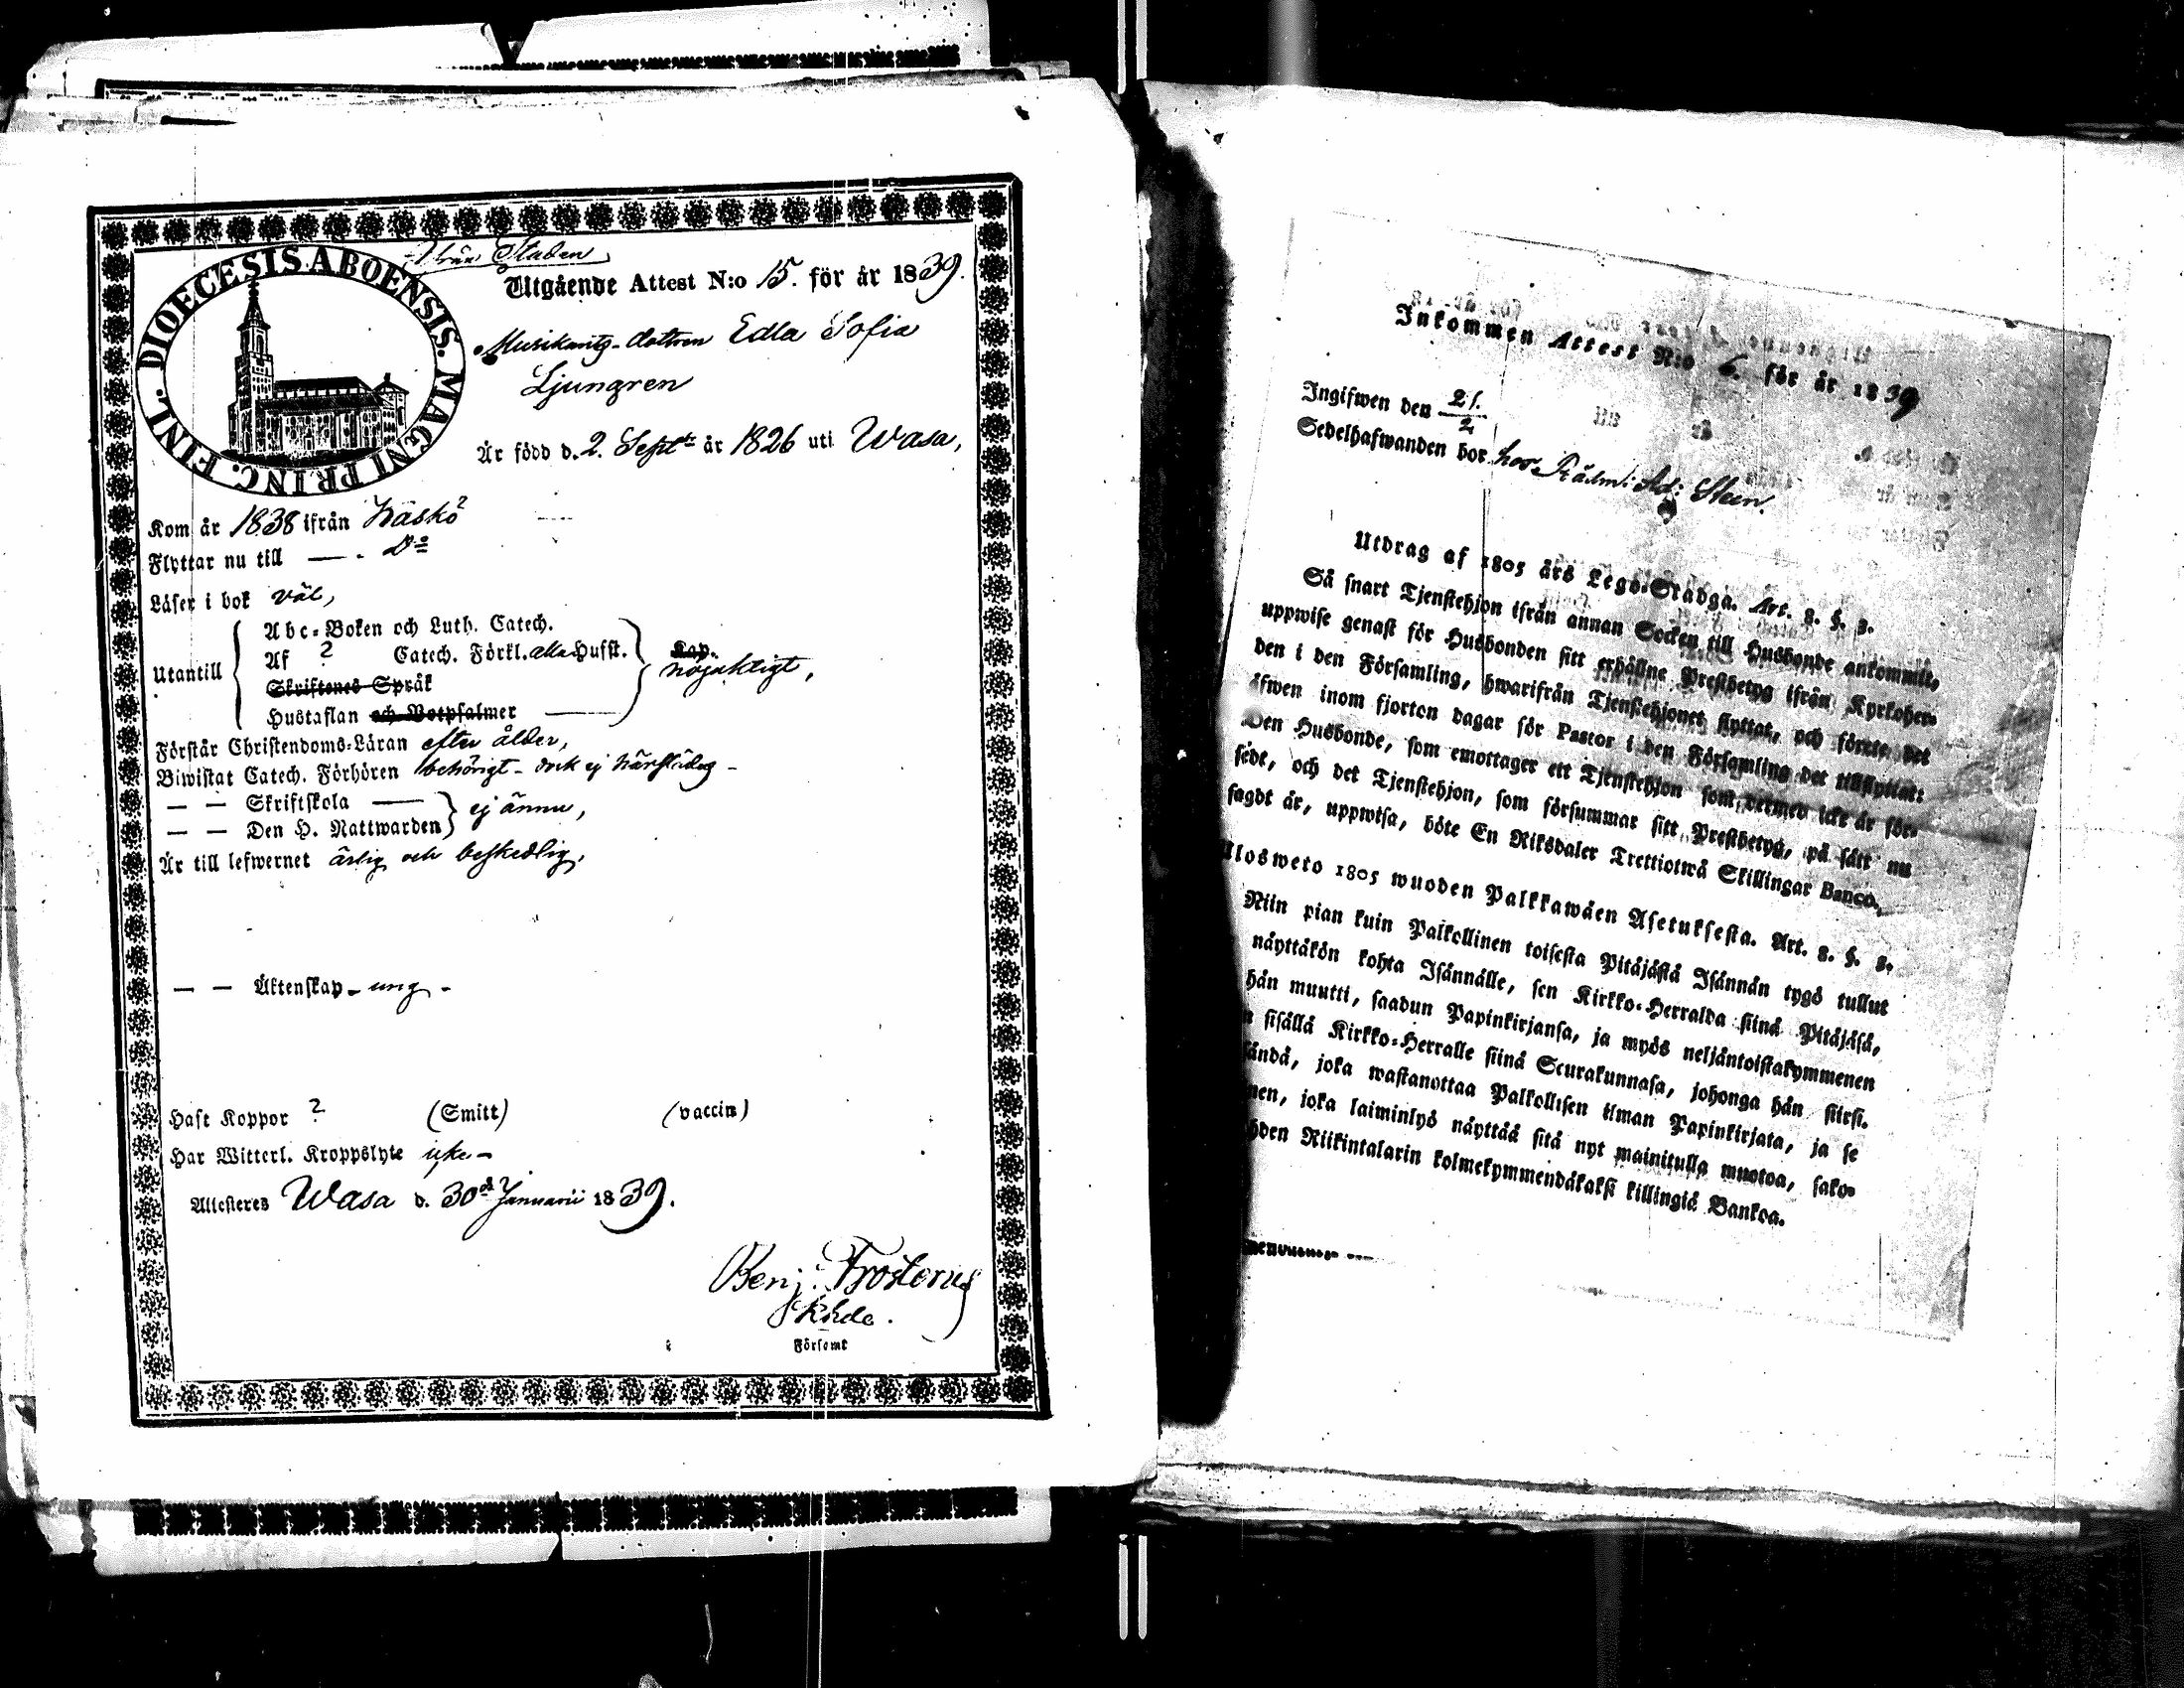 Från Staden
DIOECESIS ABOENSIS. MAGNI PRINC. FINL.
Utgående Attest N:o 15. för år 1839.
Musikants-dottren Edla Sofia
Ljungren
Är född d. 2. Septr år 1826 uti Wasa,
Kom år 1838 ifrån Kaskö
Flyttar nu till — - Do
Läser i bok väl,
Utantill
Abc-Boken och Luth. Catech.
Af ? Catech. Förkl. alla Husfst. Kap.
nöjaktigt,
Skriftenes Språk
Hustaflan och Botpsalmer
Förstår Christendoms-Läran efter ålder,
Biwistat Catech. Förhören behörigt - dock ej härstädes -
— — Skriftskola —
ej ännu,
— — Den H. Nattwarden
Är till lefwernet ärlig och beskedlig,
— — Äktenskap - ung -
Haft Koppor ? (Smitt) (vaccin)
Har Witterl. Kroppslyte icke -
Attesteres Wasa d. 30de Januarii 1839.
Benj: Frosterus
Khde.
Församt
Inkommen Attest N:o 6. för år 1839
Ingifwen den 21/2
Sedelhafwanden bor hos Rådm: Ad: Steen.
Utdrag af 1805 års Lego-Stadga. Art. 8. §. 3.
Så snart Tjenstehjon ifrån annan Socken till Husbonde ankommit,
uppwise genast för Husbonden sitt erhållne Prestbetyg ifrån Kyrkoher-
den i den Församling, hwarifrån Tjenstehjonet flyttat, och förete det
äfwen inom fjorton dagar för Pastor i den Församling det tillflyttat:
Den Husbonde, som emottager ett Tjenstehjon som dermed icke är för-
sedt, och det Tjenstehjon, som försummar sitt Prestbetyg, på sätt nu
sagdt är, uppwisa, böte En Riksdaler Trettiotwå Skillingar Banco.
Ulosweto 1805 wuoden Palkkawäen Asetuksesta. Art. 8. §. 3.
Niin pian kuin Palkollinen toisesta Pitäjästä Isännän tygö tullut
näyttäkön kohta Isännälle, sen Kirkko-Herralda siinä Pitäjäsä,
hän muutti, saadun Papinkirjansa, ja myös neljäntoistakymmenen
n sisällä Kirkko-Herralle siinä Seurakunnasa, johonga hän siirsi.
sändä, joka wastanottaa Palkollisen ilman Papinkirjata, ja se
nen, joka laiminlyö näyttää sitä nyt mainitulla muotoa, sako-
hden Riikintalarin kolmekymmendäkaksi killingiä Bankoa.